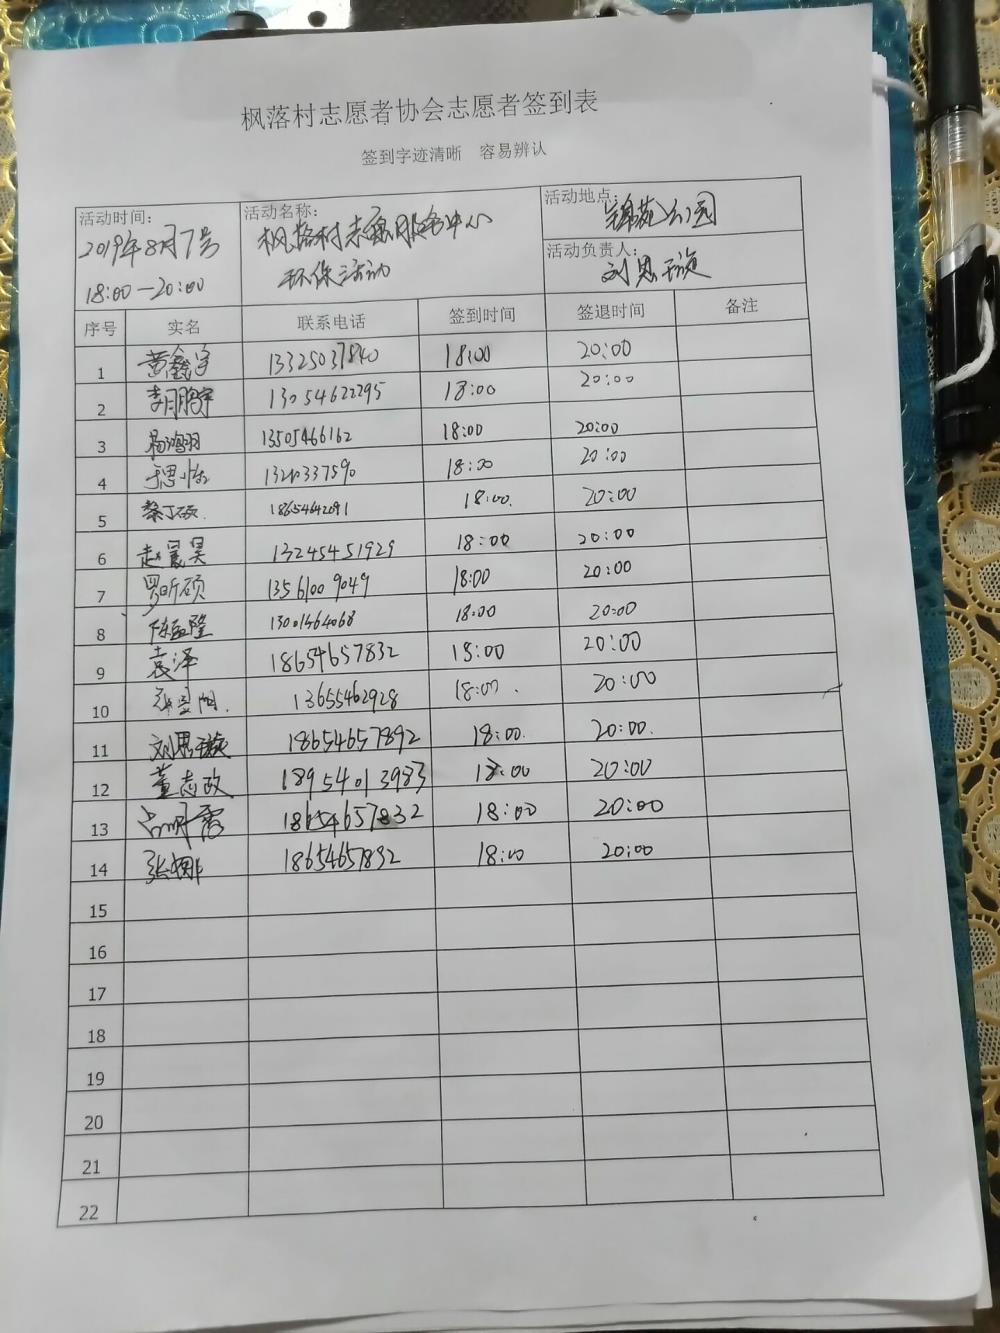 枫落村志愿者协会志愿者签到表
签到字迹清晰 容易辨认
活动时间: 2019年8月7号 18:00—20:00
活动名称: 枫落村志愿服务中心 环保活动
活动地点: 锦苑公园
活动负责人: 刘思璇
序号 实名 联系电话 签到时间 签退时间 备注
1 黄鑫宇 13325037840 18:00 20:00
2 李鹏宇 13054622295 18:00 20:00
3 杨鸿羽 13505466162 18:00 20:00
4 于思 18:00 20:00
5 18654642091 18:00. 20:00
6 赵晨昊 13245451929 18:00 20:00
7 罗昕硕 13561009049 18:00 20:00
8 陈孟隆 13001464068 18:00 20:00
9 袁泽 18654657832 18:00 20:00
10 13655462928 18:00. 20:00
11 刘思璇 18654657892 18:00. 20:00.
12 董志政 18954013983 18:00 20:00
13 18654657832 18:00 20:00
14 张娜 18654657832 18:00 20:00
15
16
17
18
19
20
21
22